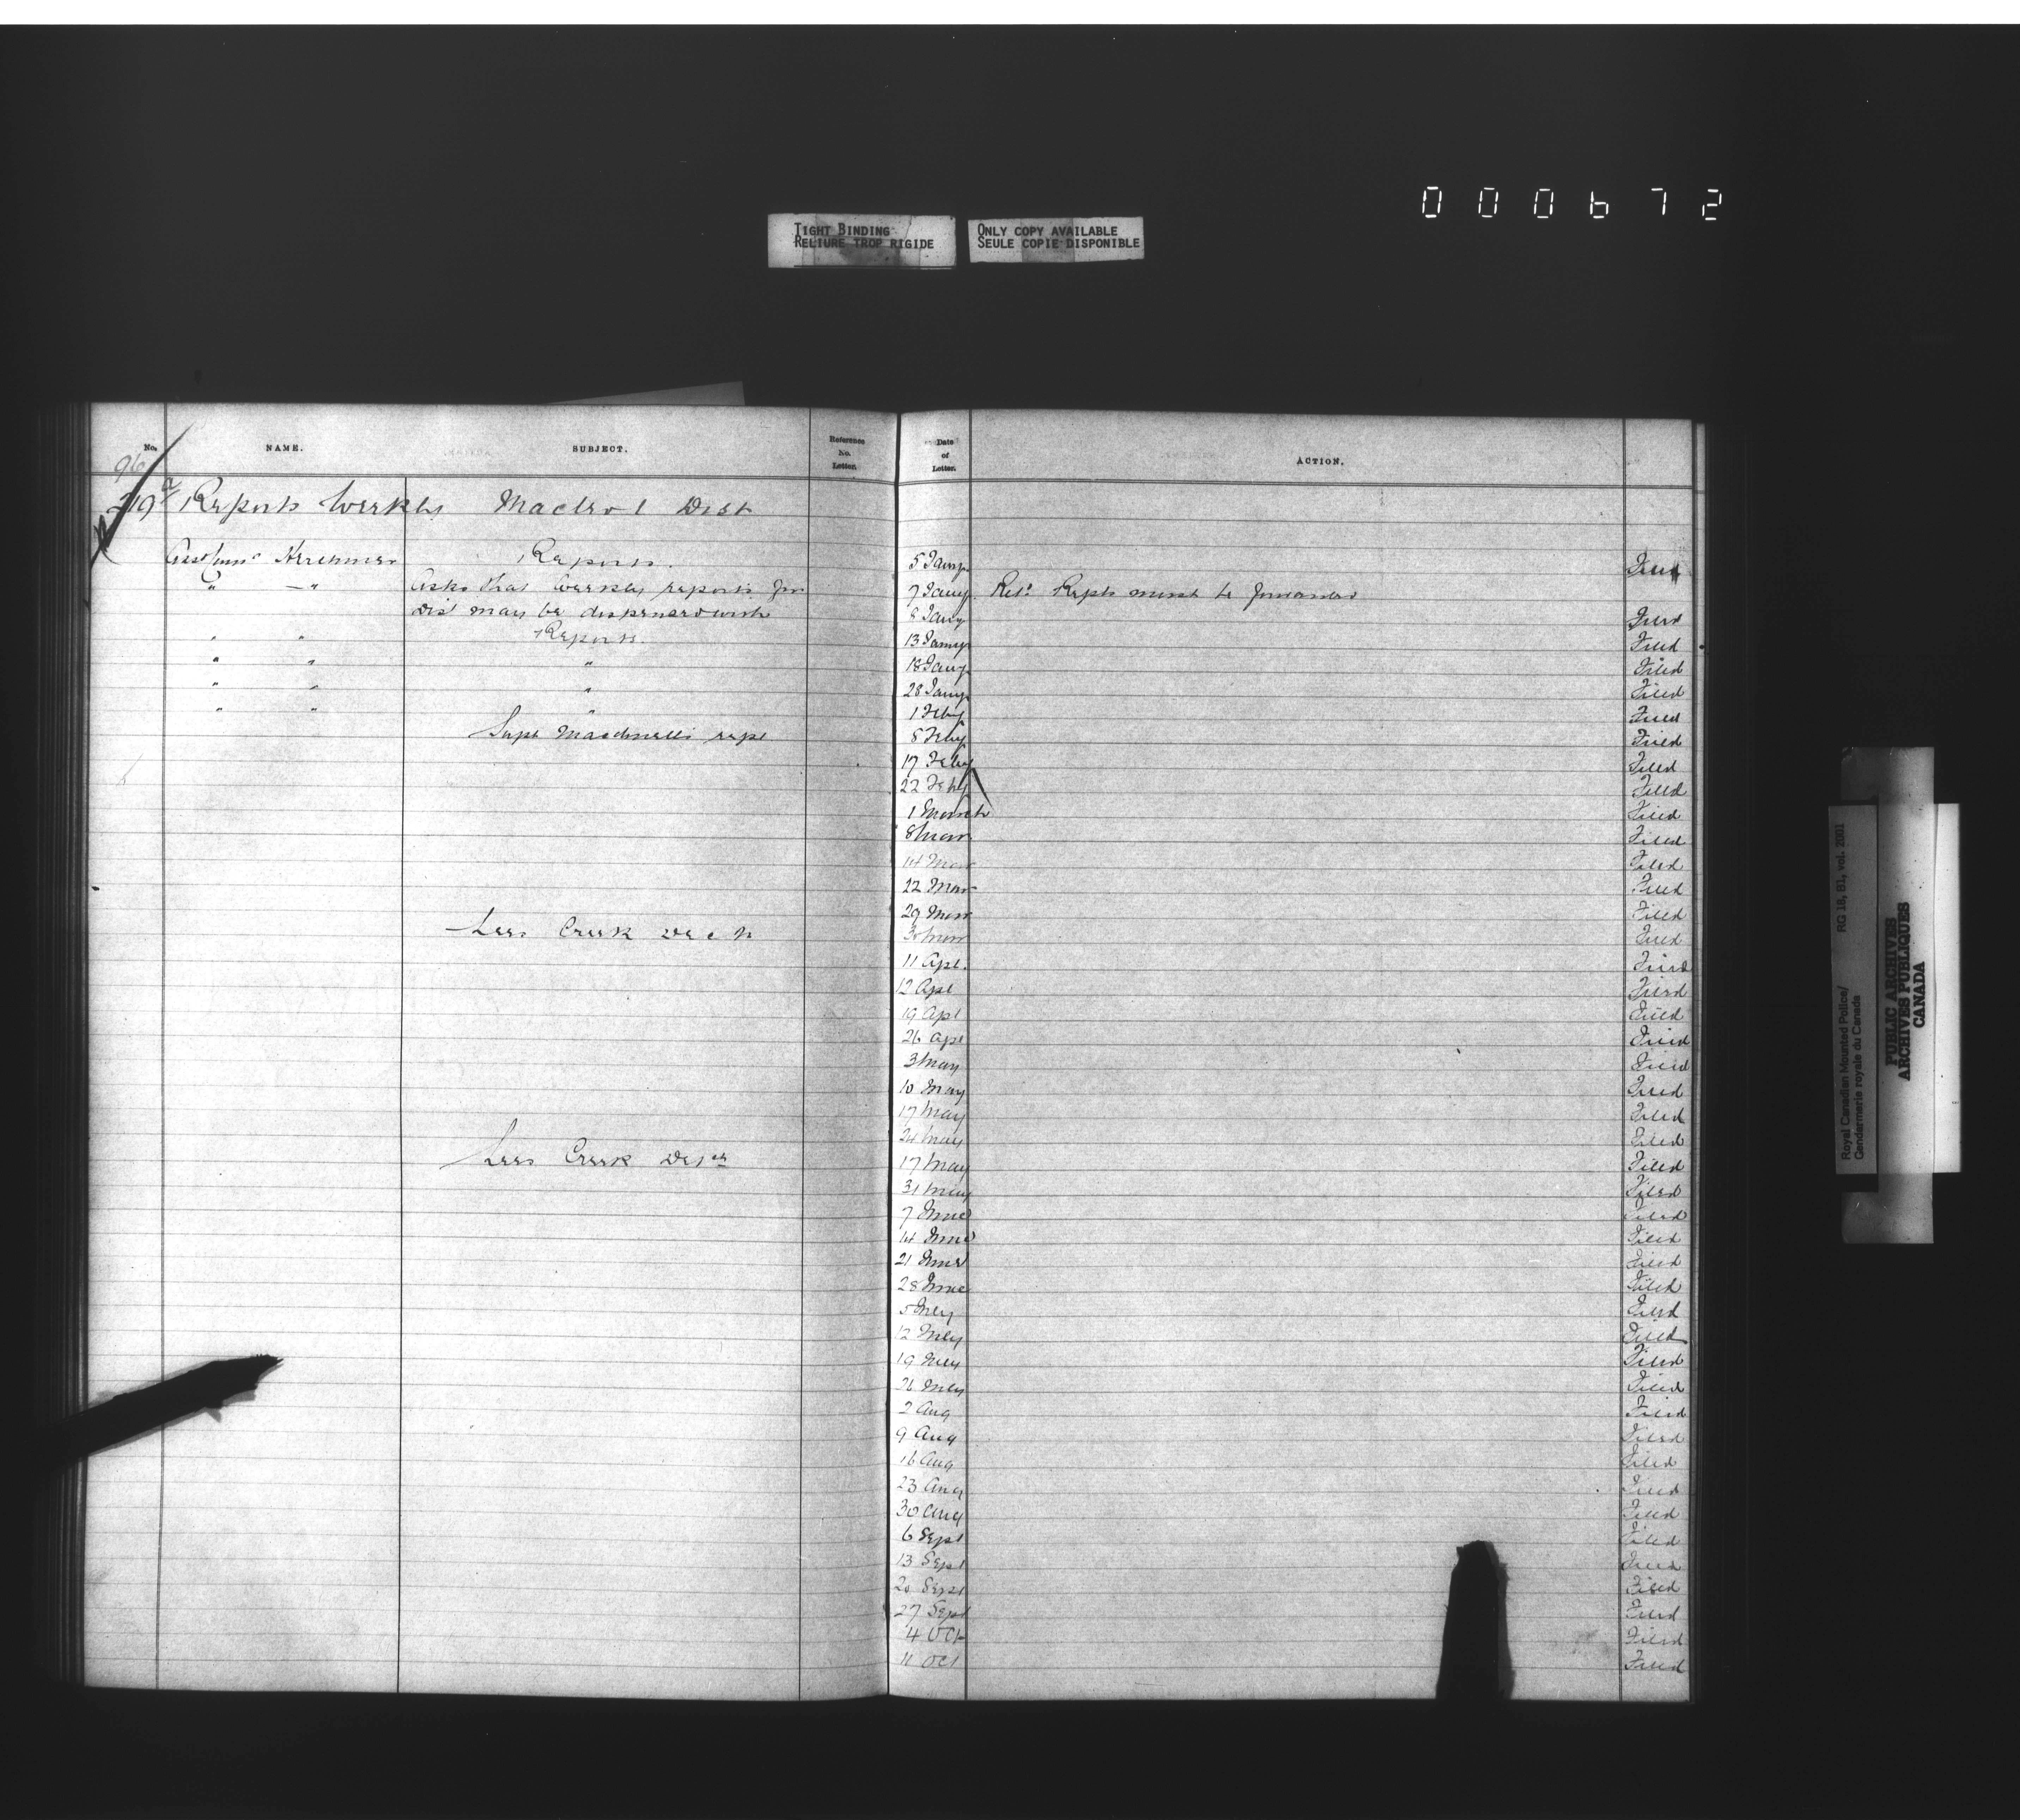 000672
TIGHT BINDING
RELIURE TROP RIGIDE
ONLY COPY AVAILABLE
SEULE COPIE DISPONIBLE
No. NAME. SUBJECT. Reference No. Letter. Date of Letter. ACTION.
96
219 Reports Weekly Macleod Dist
Reports. 5 Jany. Filed
" " Asks that weekly reports for 7 Jany. Repts must be forwarded
Dist may be dispensed with 8 Jany Filed
" " Reports. 13 Jany Filed
" " " 18 Jany Filed
" " " 28 Jany Filed
" " " 1 Feby Filed
Supt rept 8 Feby Filed
17 Feby Filed
22 Feby Filed
1 March Filed
8 Mar Filed
14 Mar Filed
22 Mar Filed
29 Mar Filed
Lees Creek 30 Mar Filed
11 Apl. Filed
12 Apl Filed
19 Apl Filed
26 Apl Filed
3 May Filed
10 May Filed
17 May Filed
24 May Filed
Lees Creek 17 May Filed
31 May Filed
7 June Filed
14 June Filed
21 June Filed
28 June Filed
5 July Filed
12 July Filed
19 July Filed
26 July Filed
2 Aug Filed
9 Aug Filed
16 Aug Filed
23 Aug Filed
30 Aug Filed
6 Sept Filed
13 Sept Filed
20 Sept Filed
27 Sept Filed
4 Oct Filed
11 Oct Filed
Royal Canadian Mounted Police/ RG 18, B1, vol. 2001
Gendarmerie royale du Canada
PUBLIC ARCHIVES
ARCHIVES PUBLIQUES
CANADA